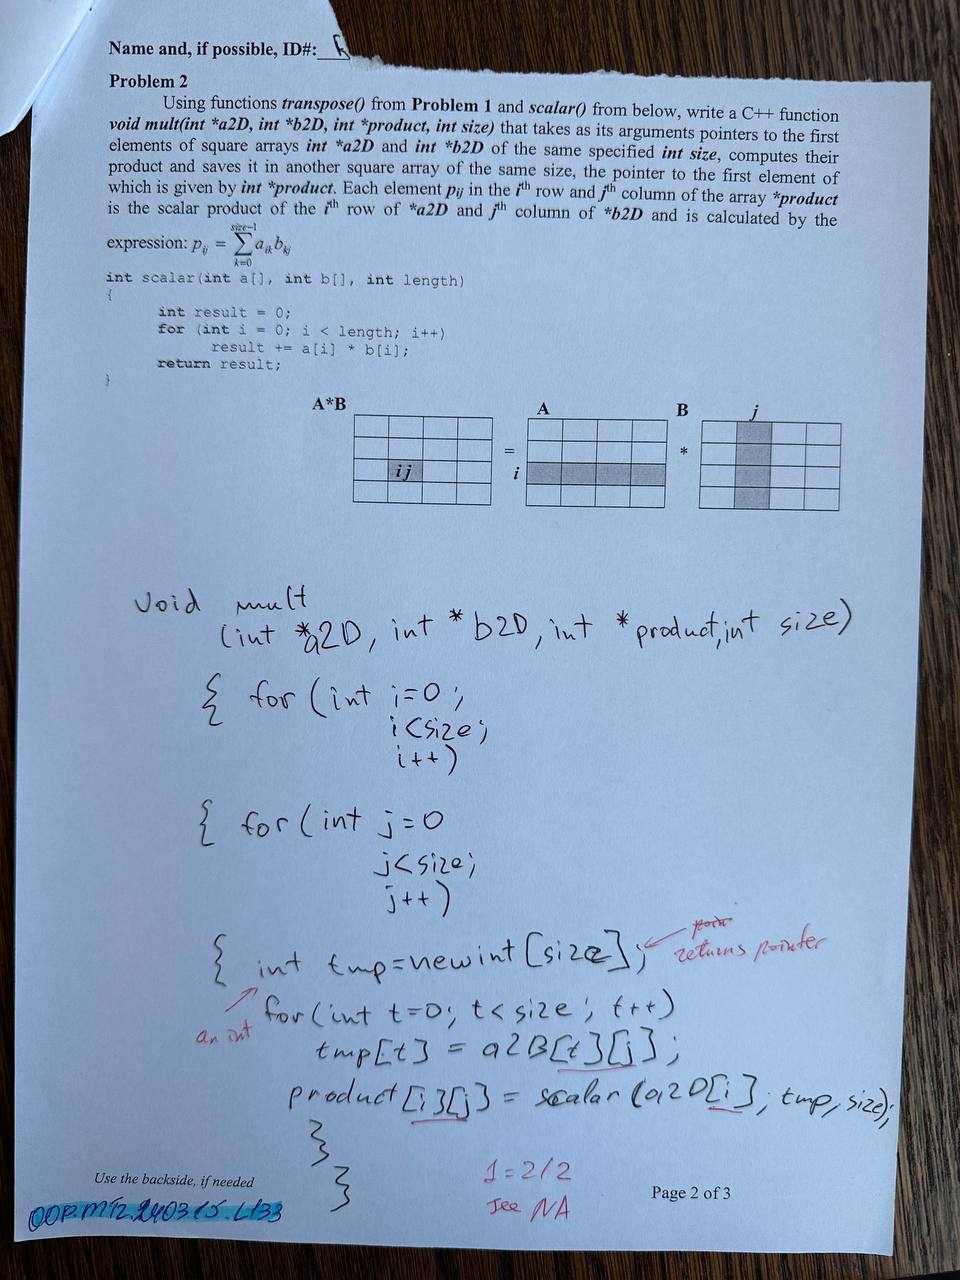 Name and, if possible, ID#:
Problem 2
Using functions transpose() from Problem 1 and scalar() from below, write a C++ function
void mult(int *a2D, int *b2D, int *product, int size) that takes as its arguments pointers to the first
elements of square arrays int *a2D and int *b2D of the same specified int size, computes their
product and saves it in another square array of the same size, the pointer to the first element of
which is given by int *product. Each element pij in the ith row and jth column of the array *product
is the scalar product of the ith row of *a2D and jth column of *b2D and is calculated by the
expression: pij = size-1 ∑ k=0 aik bkj
int scalar(int a[], int b[], int length)
{
int result = 0;
for (int i = 0; i < length; i++)
result += a[i] * b[i];
return result;
}
A*B
A
B
j
=
*
i j
i
void mult
(int *a2D, int *b2D, int *product, int size)
{ for (int i=0;
i<size;
i++)
{ for (int j=0
j<size;
j++)
{ int tmp=newint[size];
returns pointer
an int
for(int t=0; t<size; t++)
tmp[t] = a2B[t][j];
product[i][j] = scalar(a2D[i], tmp, size);
}
}
Use the backside, if needed
1=2/2
See NA
Page 2 of 3
OOP.MT2.240315.L133